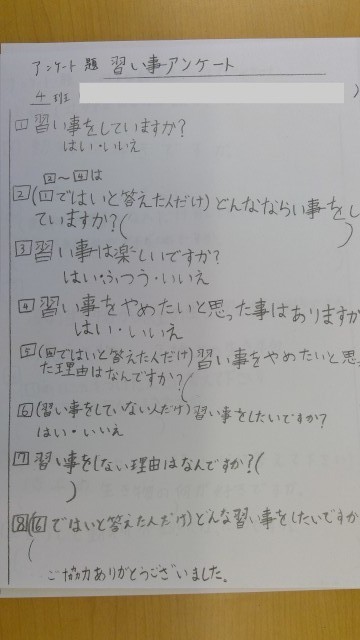 アンケート題 習い事アンケート
4 班
1 習い事をしていますか?
はい・いいえ
2〜4は
2(1ではいと答えた人だけ)どんなならい事をし
ていますか?( )
3 習い事は楽しいですか?
はい・ふつう・いいえ
4 習い事をやめたいと思った事はありますか
はい・いいえ
5(4ではいと答えた人だけ)習い事をやめたいと思っ
た理由はなんですか?(
6(習い事をしていない人だけ)習い事をしたいですか?
はい・いいえ
7 習い事をしない理由はなんですか?(
)
8(6ではいと答えた人だけ)どんな習い事をしたいですか
(
ご協力ありがとうございました。